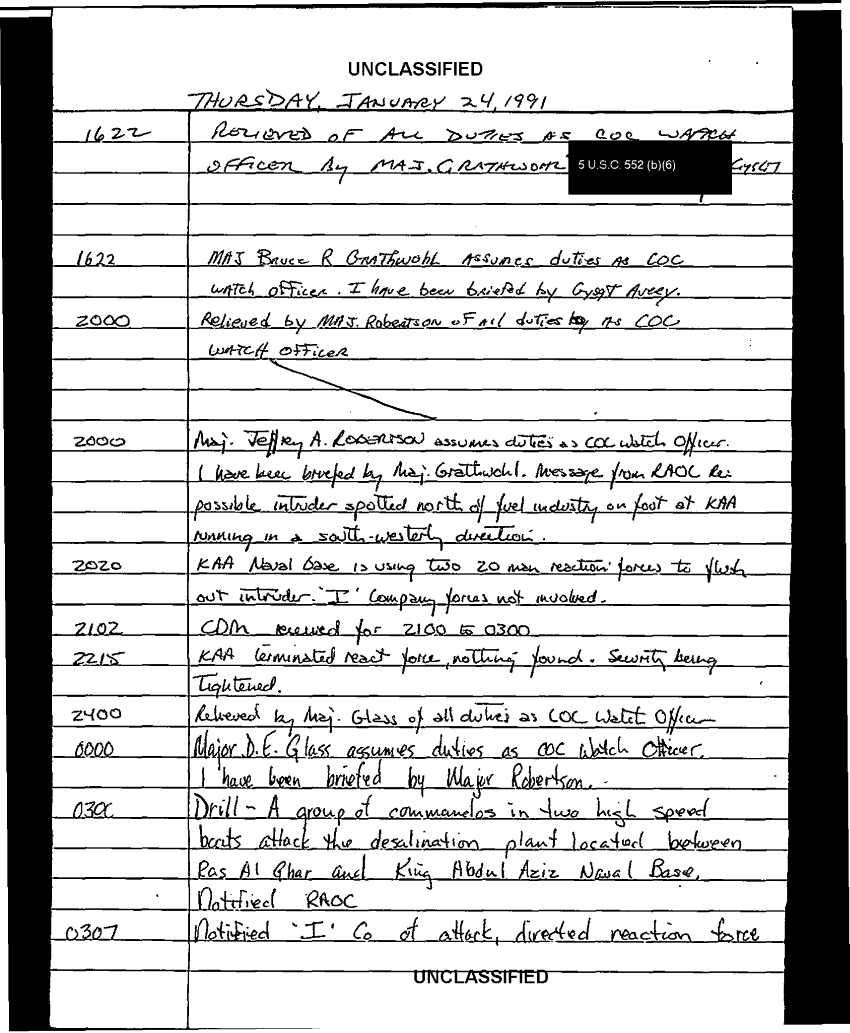 UNCLASSIFIED
THURSDAY, JANUARY 24, 1991
1622 RELIEVED OF ALL DUTIES AS COC WATCH
OFFICER By MAJ. GRATHWOHL 5 U.S.C. 552 (b)(6) GYSGT
1622 MAJ Bruce R GRATHWOHL ASSUMES duties AS COC
WATCH officer. I have been briefed by GySgT Avery.
2000 Relieved by MAJ. Robertson of All duties AS COC
WATCH OFFICER
2000 Maj. Jeffrey A. ROBERTSON assumes duties as COC Watch Officer.
I have been briefed by Maj. Grathwohl. Message from RAOC Re:
possible intruder spotted north of fuel industry on foot at KAA
running in a south-westerly direction.
2020 KAA Naval base is using two 20 man reaction forces to flush
out intruder. 'I' Company forces not involved.
2102 CDM received for 2100 to 0300
2215 KAA terminated react force, nothing found. Security being
Tightened.
2400 Relieved by Maj. Glass of all duties as COC Watch Officer
0000 Major D.E. Glass assumes duties as COC Watch Officer.
I have been briefed by Major Robertson.
0300 Drill - A group of commandos in two high speed
boats attack the desalination plant located between
Ras Al Ghar and King Abdul Aziz Naval Base.
Notified RAOC
0307 Notified 'I' Co of attack, directed reaction force
UNCLASSIFIED